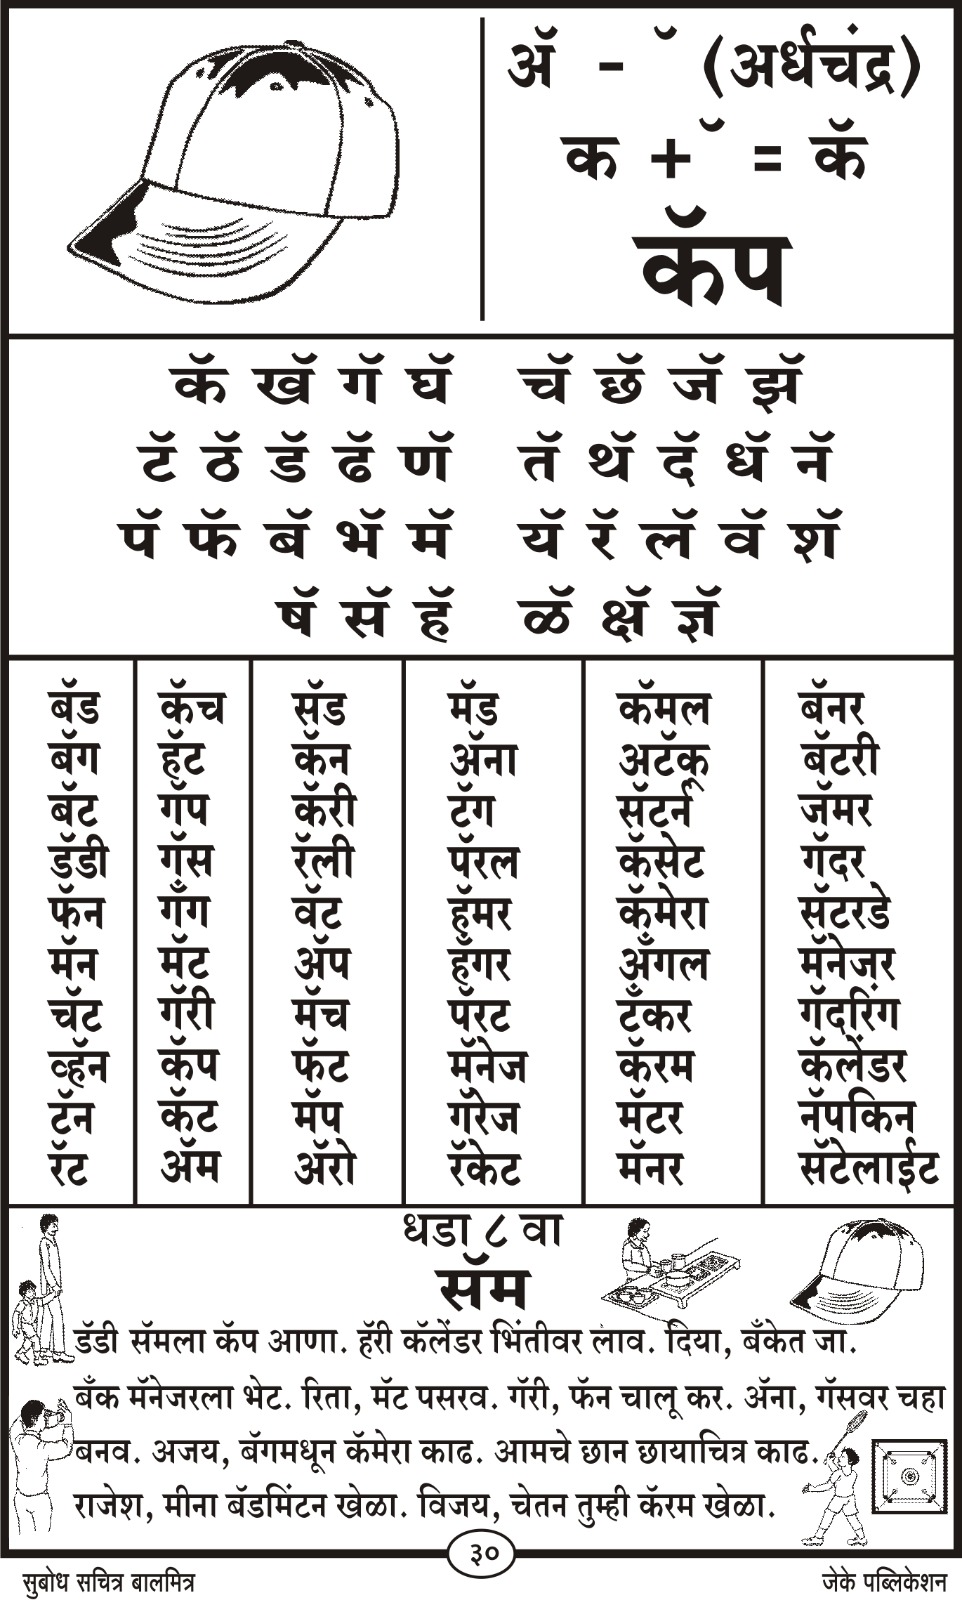 ॲ - ॅ (अर्धचंद्र)
क + ॅ = कॅ
कॅप
कॅ खॅ गॅ घॅ चॅ छॅ जॅ झॅ
टॅ ठॅ डॅ ढॅ णॅ तॅ थॅ दॅ धॅ नॅ
पॅ फॅ बॅ भॅ मॅ यॅ रॅ लॅ वॅ शॅ
षॅ सॅ हॅ ळॅ क्षॅ ज्ञॅ
बॅड कॅच सॅड मॅड कॅमल बॅनर
बॅग हॅट कॅन ॲना अटॅक् बॅटरी
बॅट गॅप कॅरी टॅग सॅटर्न जॅमर
डॅडी गॅस रॅली पॅरल कॅसेट गॅदर
फॅन गँग वॅट हॅमर कॅमेरा सॅटरडे
मॅन मॅट ॲप हँगर अँगल मॅनेजर
चॅट गॅरी मॅच पॅरट टँकर गॅदरिंग
व्हॅन कॅप फॅट मॅनेज कॅरम कॅलेंडर
टॅन कॅट मॅप गॅरेज मॅटर नॅपकिन
रॅट ॲम ॲरो रॅकेट मॅनर सॅटेलाईट
धडा ८ वा
सॅम
डॅडी सॅमला कॅप आणा. हॅरी कॅलेंडर भिंतीवर लाव. दिया, बँकेत जा.
बँक मॅनेजरला भेट. रिता, मॅट पसरव. गॅरी, फॅन चालू कर. ॲना, गॅसवर चहा
बनव. अजय, बॅगमधून कॅमेरा काढ. आमचे छान छायाचित्र काढ.
राजेश, मीना बॅडमिंटन खेळा. विजय, चेतन तुम्ही कॅरम खेळा.
३०
सुबोध सचित्र बालमित्र जेके पब्लिकेशन